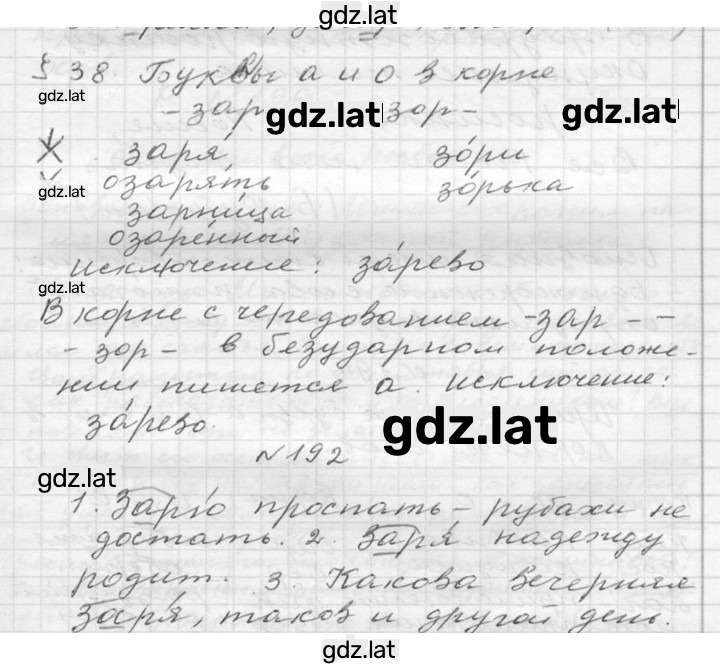 gdz.lat
§ 38 Буквы а и о в корне
gdz.lat
-зар gdz.lat зор- gdz.lat
заря, зо́ри
озаря́ть зо́рька
gdz.lat
зарни́ца
озарённый
исключение: за́рево
gdz.lat
В корне с чередованием -зар --
-зор- в безударном положе-
нии пишется а. исключение:
за́рево. gdz.lat
№192
gdz.lat
1. Зарю́ проспать – рубахи не
достать. 2. Заря́ надежду
родит. 3. Какова вечерняя
заря́, таков и другой день.
gdz.lat